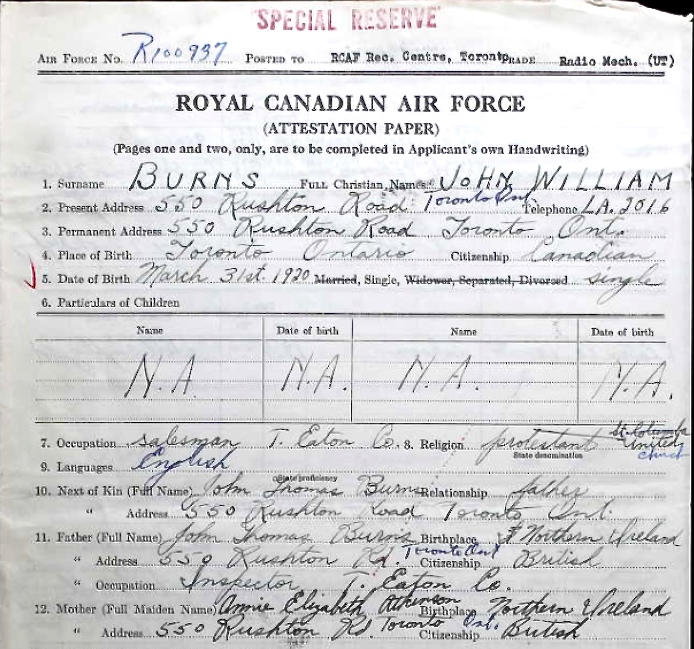 "SPECIAL RESERVE"
AIR FORCE NO. R100937 POSTED TO RCAF Rec. Centre, Toronto RADE Radio Mech. (UT)
ROYAL CANADIAN AIR FORCE
(ATTESTATION PAPER)
(Pages one and two, only, are to be completed in Applicant's own Handwriting)
1. Surname BURNS Full Christian Names JOHN WILLIAM
2. Present Address 550 Rushton Road Toronto Ont. Telephone LA. 2016
3. Permanent Address 550 Rushton Road Toronto Ont.
4. Place of Birth Toronto Ontario Citizenship Canadian
5. Date of Birth March 31st. 1920 Married, Single, Widower, Separated, Divorced single
6. Particulars of Children
Name Date of birth Name Date of birth
N.A. N.A. N.A. N.A.
7. Occupation salesman T. Eaton Co. 8. Religion protestant St. Columba United church
State denomination
9. Languages English
State proficiency
10. Next of Kin (Full Name) John Thomas Burns Relationship father
" Address 550 Rushton Road Toronto Ont.
11. Father (Full Name) John Thomas Burns Birthplace Northern Ireland
" Address 550 Rushton Rd. Toronto Ont Citizenship British
" Occupation Inspector T. Eaton Co.
12. Mother (Full Maiden Name) Annie Elizabeth Atkinson Birthplace Northern Ireland
" Address 550 Rushton Rd. Toronto Ont. Citizenship British